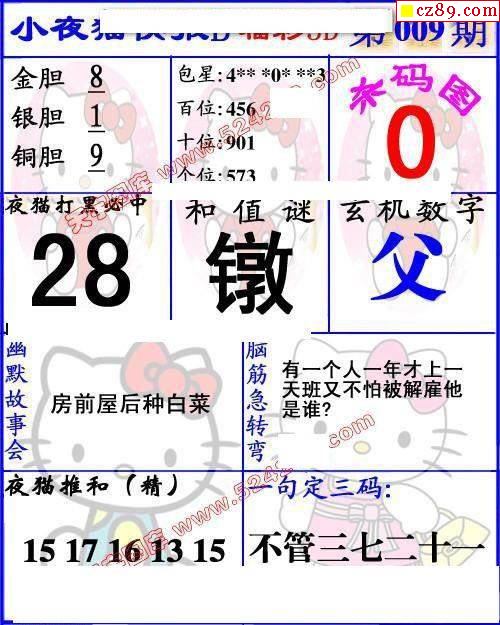 cz89.com
小夜猫快报D 福彩3D 第009期
金胆 8
银胆 1
铜胆 9
包星:4** *0* **3
百位:456
十位:901
个位:573
杀码图
0
夜猫打黑必中
28
和值谜
镦
玄机数字
父
幽默故事会
房前屋后种白菜
脑筋急转弯
有一个人一年才上一
天班又不怕被解雇他
是谁?
夜猫推和（精）
15 17 16 13 15
一句定三码:
不管三七二十一